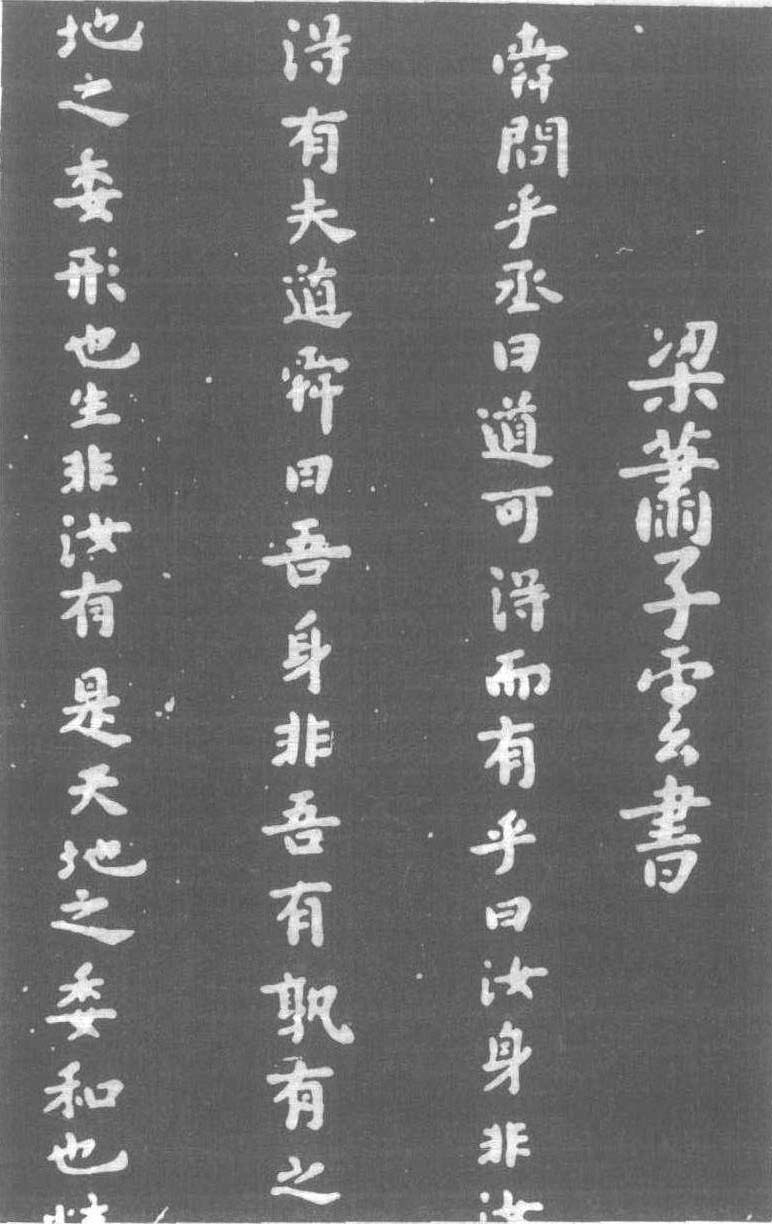 梁蕭子雲書
舜問乎丞曰道可得而有乎曰汝身非汝
得有夫道舜曰吾身非吾有孰有之
地之委形也生非汝有是天地之委和也